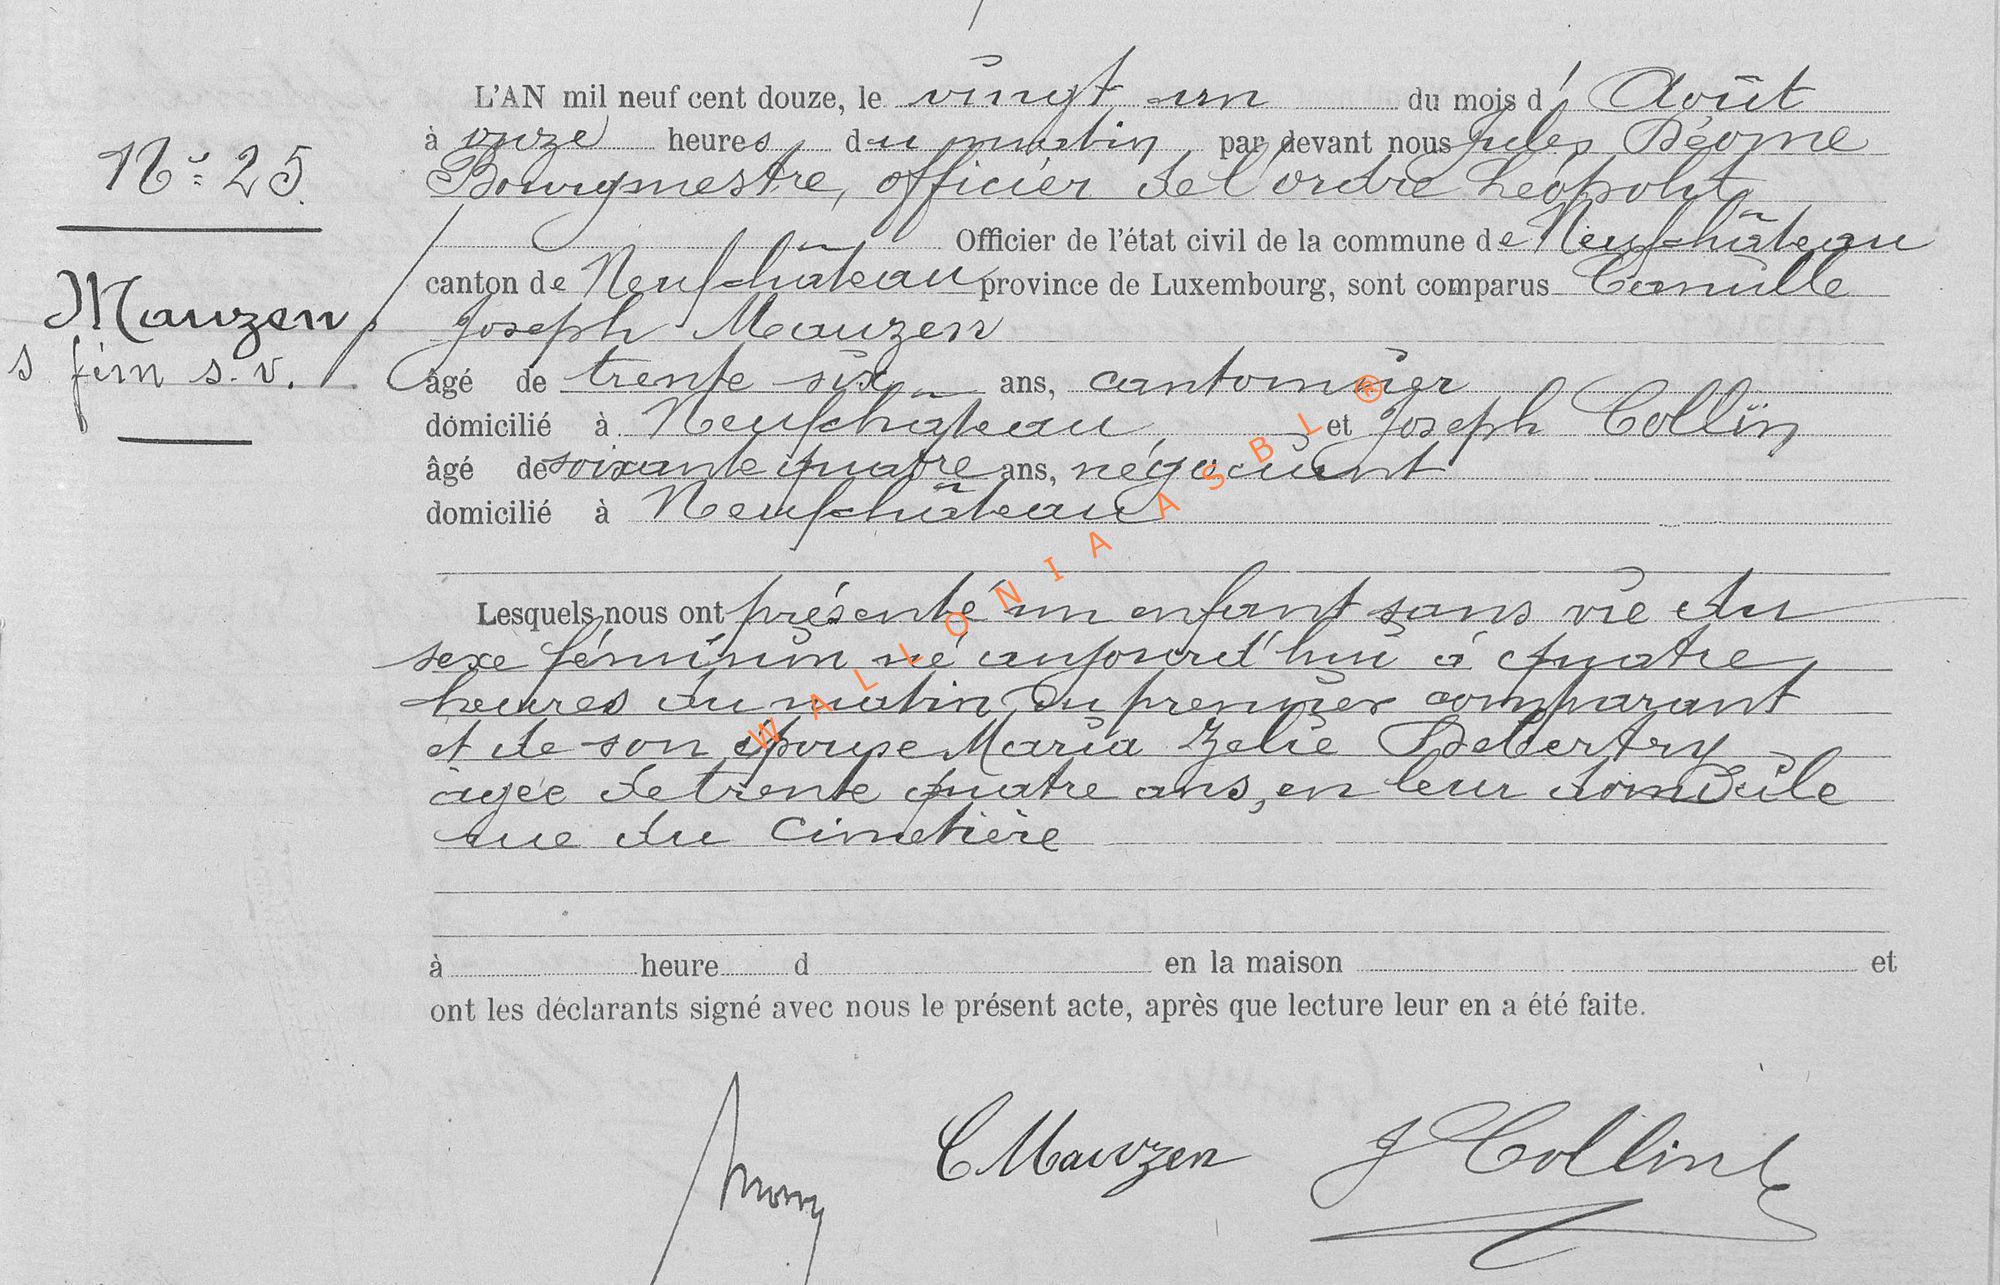 L'AN mil neuf cent douze, le vingt un du mois d' Août
à onze heures du matin par devant nous Jules Déome
Bourgmestre, officier de l'ordre Léopold
Officier de l'état civil de la commune de Neufchâteau
canton de Neufchâteau province de Luxembourg, sont comparus Camille
Joseph Mauzen
âgé de trente six ans, cantonnier
domicilié à Neufchâteau, et Joseph Collin
âgé de soixante quatre ans, négociant
domicilié à Neufchâteau
Lesquels nous ont présenté un enfant sans vie du
sexe féminin né aujourd'hui à quatre
heures du matin, du premier comparant
et de son épouse Maria Zelie
âgée de trente quatre ans, en leur domicile
rue du Cimetière
à heure d en la maison et
ont les déclarants signé avec nous le présent acte, après que lecture leur en a été faite.
N° 25
Mauzen
s fém s.v.
C Mauzen J Collin
WALLONIA ASBL ®